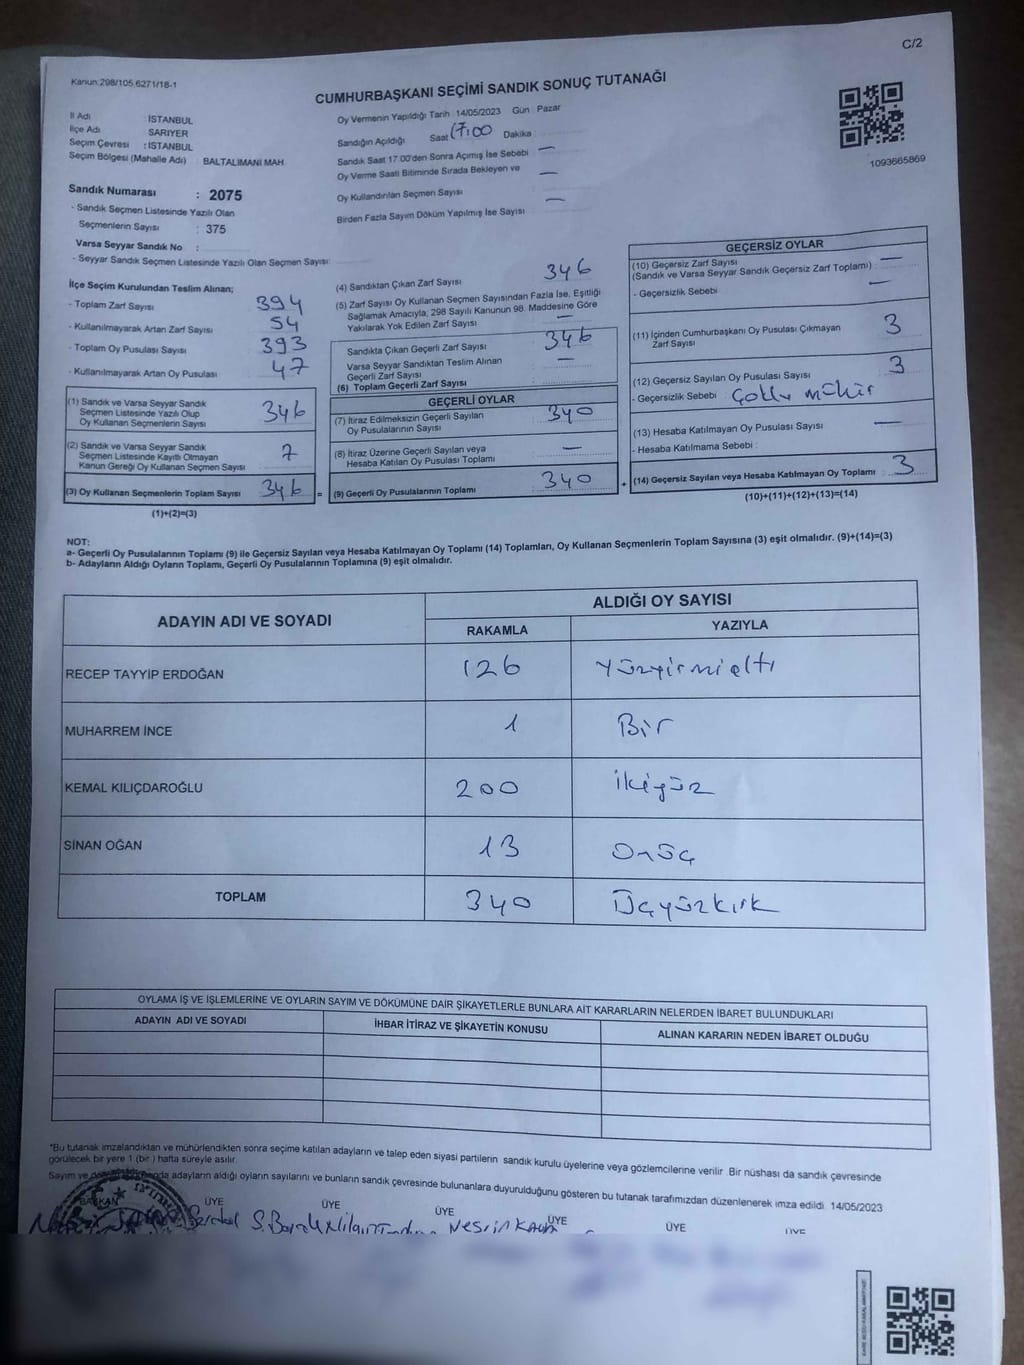 C/2
Kanun:298/105,6271/18-1
CUMHURBAŞKANI SEÇİMİ SANDIK SONUÇ TUTANAĞI
İl Adı : İSTANBUL
İlçe Adı : SARIYER
Seçim Çevresi : İSTANBUL
Seçim Bölgesi (Mahalle Adı) : BALTALIMANI MAH.
Sandık Numarası : 2075
- Sandık Seçmen Listesinde Yazılı Olan
Seçmenlerin Sayısı : 375
Varsa Seyyar Sandık No :
- Seyyar Sandık Seçmen Listesinde Yazılı Olan Seçmen Sayısı:
Oy Vermenin Yapıldığı Tarih 14/05/2023 Gün : Pazar
Sandığın Açıldığı Saat 17:00 Dakika :
Sandık Saat 17.00'den Sonra Açımış İse Sebebi —
Oy Verme Saati Bitiminde Sırada Bekleyen ve
Oy Kullandırılan Seçmen Sayısı —
Birden Fazla Sayım Döküm Yapılmış İse Sayısı —
1093665869
İlçe Seçim Kurulundan Teslim Alınan;
- Toplam Zarf Sayısı 394
- Kullanılmayarak Artan Zarf Sayısı 54
- Toplam Oy Pusulası Sayısı 393
- Kullanılmayarak Artan Oy Pusulası 47
(1) Sandık ve Varsa Seyyar Sandık
Seçmen Listesinde Yazılı Olup
Oy Kullanan Seçmenlerin Sayısı 346
(2) Sandık ve Varsa Seyyar Sandık
Seçmen Listesinde Kayıtlı Olmayan
Kanun Gereği Oy Kullanan Seçmen Sayısı 7
(3) Oy Kullanan Seçmenlerin Toplam Sayısı 346 =
(1)+(2)=(3)
(4) Sandıktan Çıkan Zarf Sayısı 346
(5) Zarf Sayısı Oy Kullanan Seçmen Sayısından Fazla İse, Eşitliği
Sağlamak Amacıyla, 298 Sayılı Kanunun 98. Maddesine Göre
Yakılarak Yok Edilen Zarf Sayısı —
Sandıkta Çıkan Geçerli Zarf Sayısı 346
Varsa Seyyar Sandıktan Teslim Alınan
Geçerli Zarf Sayısı —
(6) Toplam Geçerli Zarf Sayısı
GEÇERLİ OYLAR
(7) İtiraz Edilmeksizin Geçerli Sayılan
Oy Pusulalarının Sayısı 340
(8) İtiraz Üzerine Geçerli Sayılan veya
Hesaba Katılan Oy Pusulası Toplamı —
(9) Geçerli Oy Pusulalarının Toplamı 340 +
GEÇERSİZ OYLAR
(10) Geçersiz Zarf Sayısı —
(Sandık ve Varsa Seyyar Sandık Geçersiz Zarf Toplamı)
- Geçersizlik Sebebi —
(11) İçinden Cumhurbaşkanı Oy Pusulası Çıkmayan
Zarf Sayısı 3
(12) Geçersiz Sayılan Oy Pusulası Sayısı 3
- Geçersizlik Sebebi : Çoklu mühür
(13) Hesaba Katılmayan Oy Pusulası Sayısı —
- Hesaba Katılmama Sebebi :
(14) Geçersiz Sayılan veya Hesaba Katılmayan Oy Toplamı : 3
(10)+(11)+(12)+(13)=(14)
NOT:
a- Geçerli Oy Pusulalarının Toplamı (9) ile Geçersiz Sayılan veya Hesaba Katılmayan Oy Toplamı (14) Toplamları, Oy Kullanan Seçmenlerin Toplam Sayısına (3) eşit olmalıdır. (9)+(14)=(3)
b- Adayların Aldığı Oyların Toplamı, Geçerli Oy Pusulalarının Toplamına (9) eşit olmalıdır.
ADAYIN ADI VE SOYADI ALDIĞI OY SAYISI
RAKAMLA YAZIYLA
RECEP TAYYİP ERDOĞAN 126 Yüzyirmialtı
MUHARREM İNCE 1 Bir
KEMAL KILIÇDAROĞLU 200 İkiyüz
SİNAN OĞAN 13 Onüç
TOPLAM 340 Üçyüzkırk
OYLAMA İŞ VE İŞLEMLERİNE VE OYLARIN SAYIM VE DÖKÜMÜNE DAİR ŞİKAYETLERLE BUNLARA AİT KARARLARIN NELERDEN İBARET BULUNDUKLARI
ADAYIN ADI VE SOYADI İHBAR İTİRAZ VE ŞİKAYETİN KONUSU ALINAN KARARIN NEDEN İBARET OLDUĞU
*Bu tutanak imzalandıktan ve mühürlendikten sonra seçime katılan adayların ve talep eden siyasi partilerin sandık kurulu üyelerine veya gözlemcilerine verilir. Bir nüshası da sandık çevresinde
görülecek bir yere 1 (bir) hafta süreyle asılır.
Sayım ve adayların aldığı oyların sayılarını ve bunların sandık çevresinde bulunanlara duyurulduğunu gösteren bu tutanak tarafımızdan düzenlenerek imza edildi. 14/05/2023
BAŞKAN ÜYE ÜYE ÜYE ÜYE ÜYE ÜYE
Nesrin